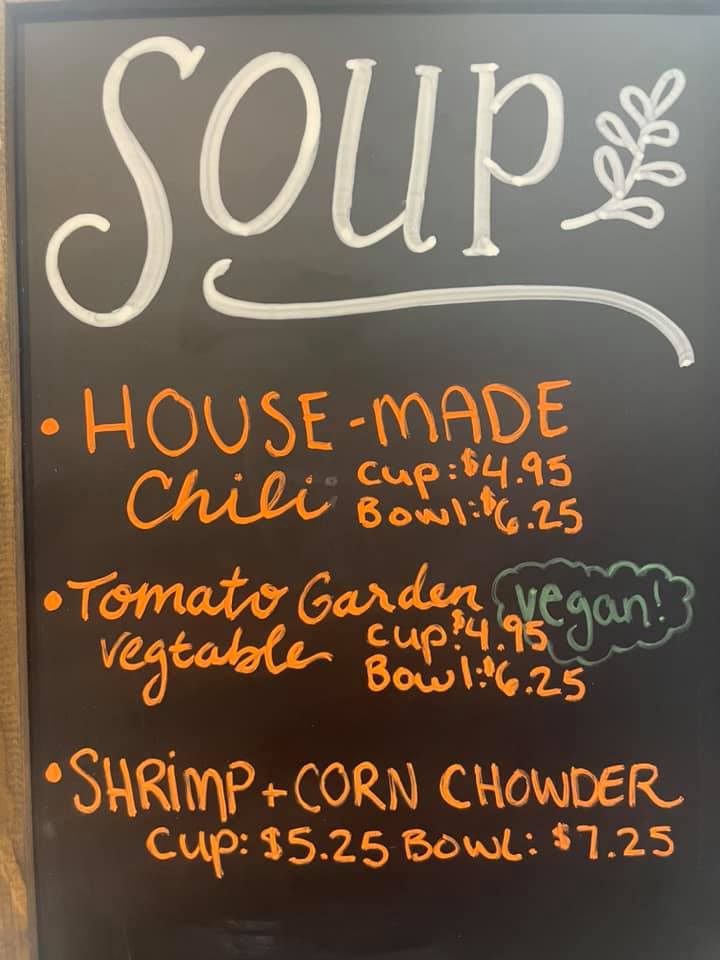 SOUP
• HOUSE-MADE
Chili Cup: $4.95
Bowl: $6.25
• Tomato Garden vegan!
vegtable Cup: $4.95
Bowl: $6.25
• SHRiMP + CORN CHOWDER
Cup: $5.25 Bowl: $7.25